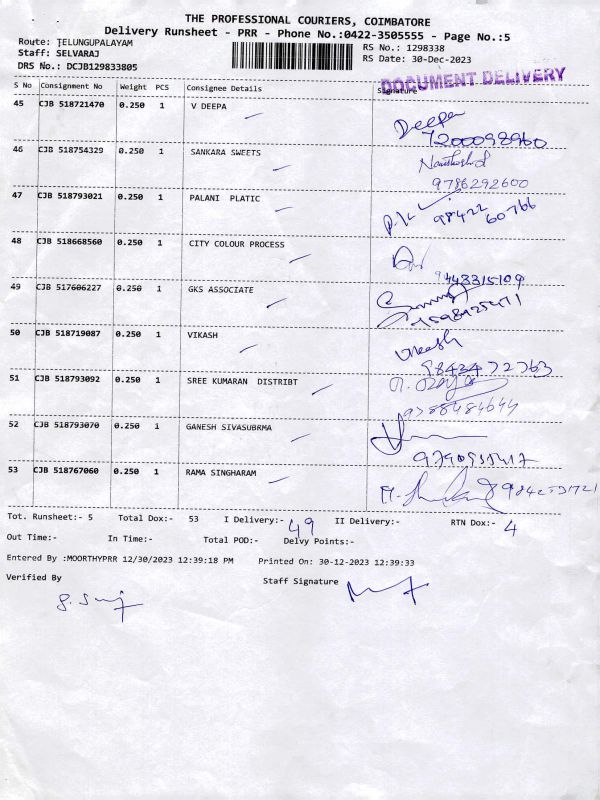 THE PROFESSIONAL COURIERS, COIMBATORE
Delivery Runsheet - PRR - Phone No.:0422-3505555 - Page No.:5
Route: TELUNGUPALAYAM
RS No.: 1298338
Staff: SELVARAJ
RS Date: 30-Dec-2023
DRS No.: DCJB129833805
DOCUMENT DELIVERY
S No Consignment No Weight PCS Consignee Details Signature
45 CJB 518721470 0.250 1 V DEEPA Deepa
7200098960
46 CJB 518754329 0.250 1 SANKARA SWEETS
9786292600
47 CJB 518793021 0.250 1 PALANI PLATIC 98422 60766
48 CJB 518668560 0.250 1 CITY COLOUR PROCESS
9443315109
49 CJB 517606227 0.250 1 GKS ASSOCIATE
50 CJB 518719087 0.250 1 VIKASH Vikash
98424 72763
51 CJB 518793092 0.250 1 SREE KUMARAN DISTRIBT
9788484644
52 CJB 518793070 0.250 1 GANESH SIVASUBRMA
53 CJB 518767060 0.250 1 RAMA SINGHARAM
Tot. Runsheet:- 5 Total Dox:- 53 I Delivery:- 49 II Delivery:- RTN Dox:- 4
Out Time:- In Time:- Total POD:- Delvy Points:-
Entered By :MOORTHYPRR 12/30/2023 12:39:18 PM Printed On: 30-12-2023 12:39:33
Verified By Staff Signature